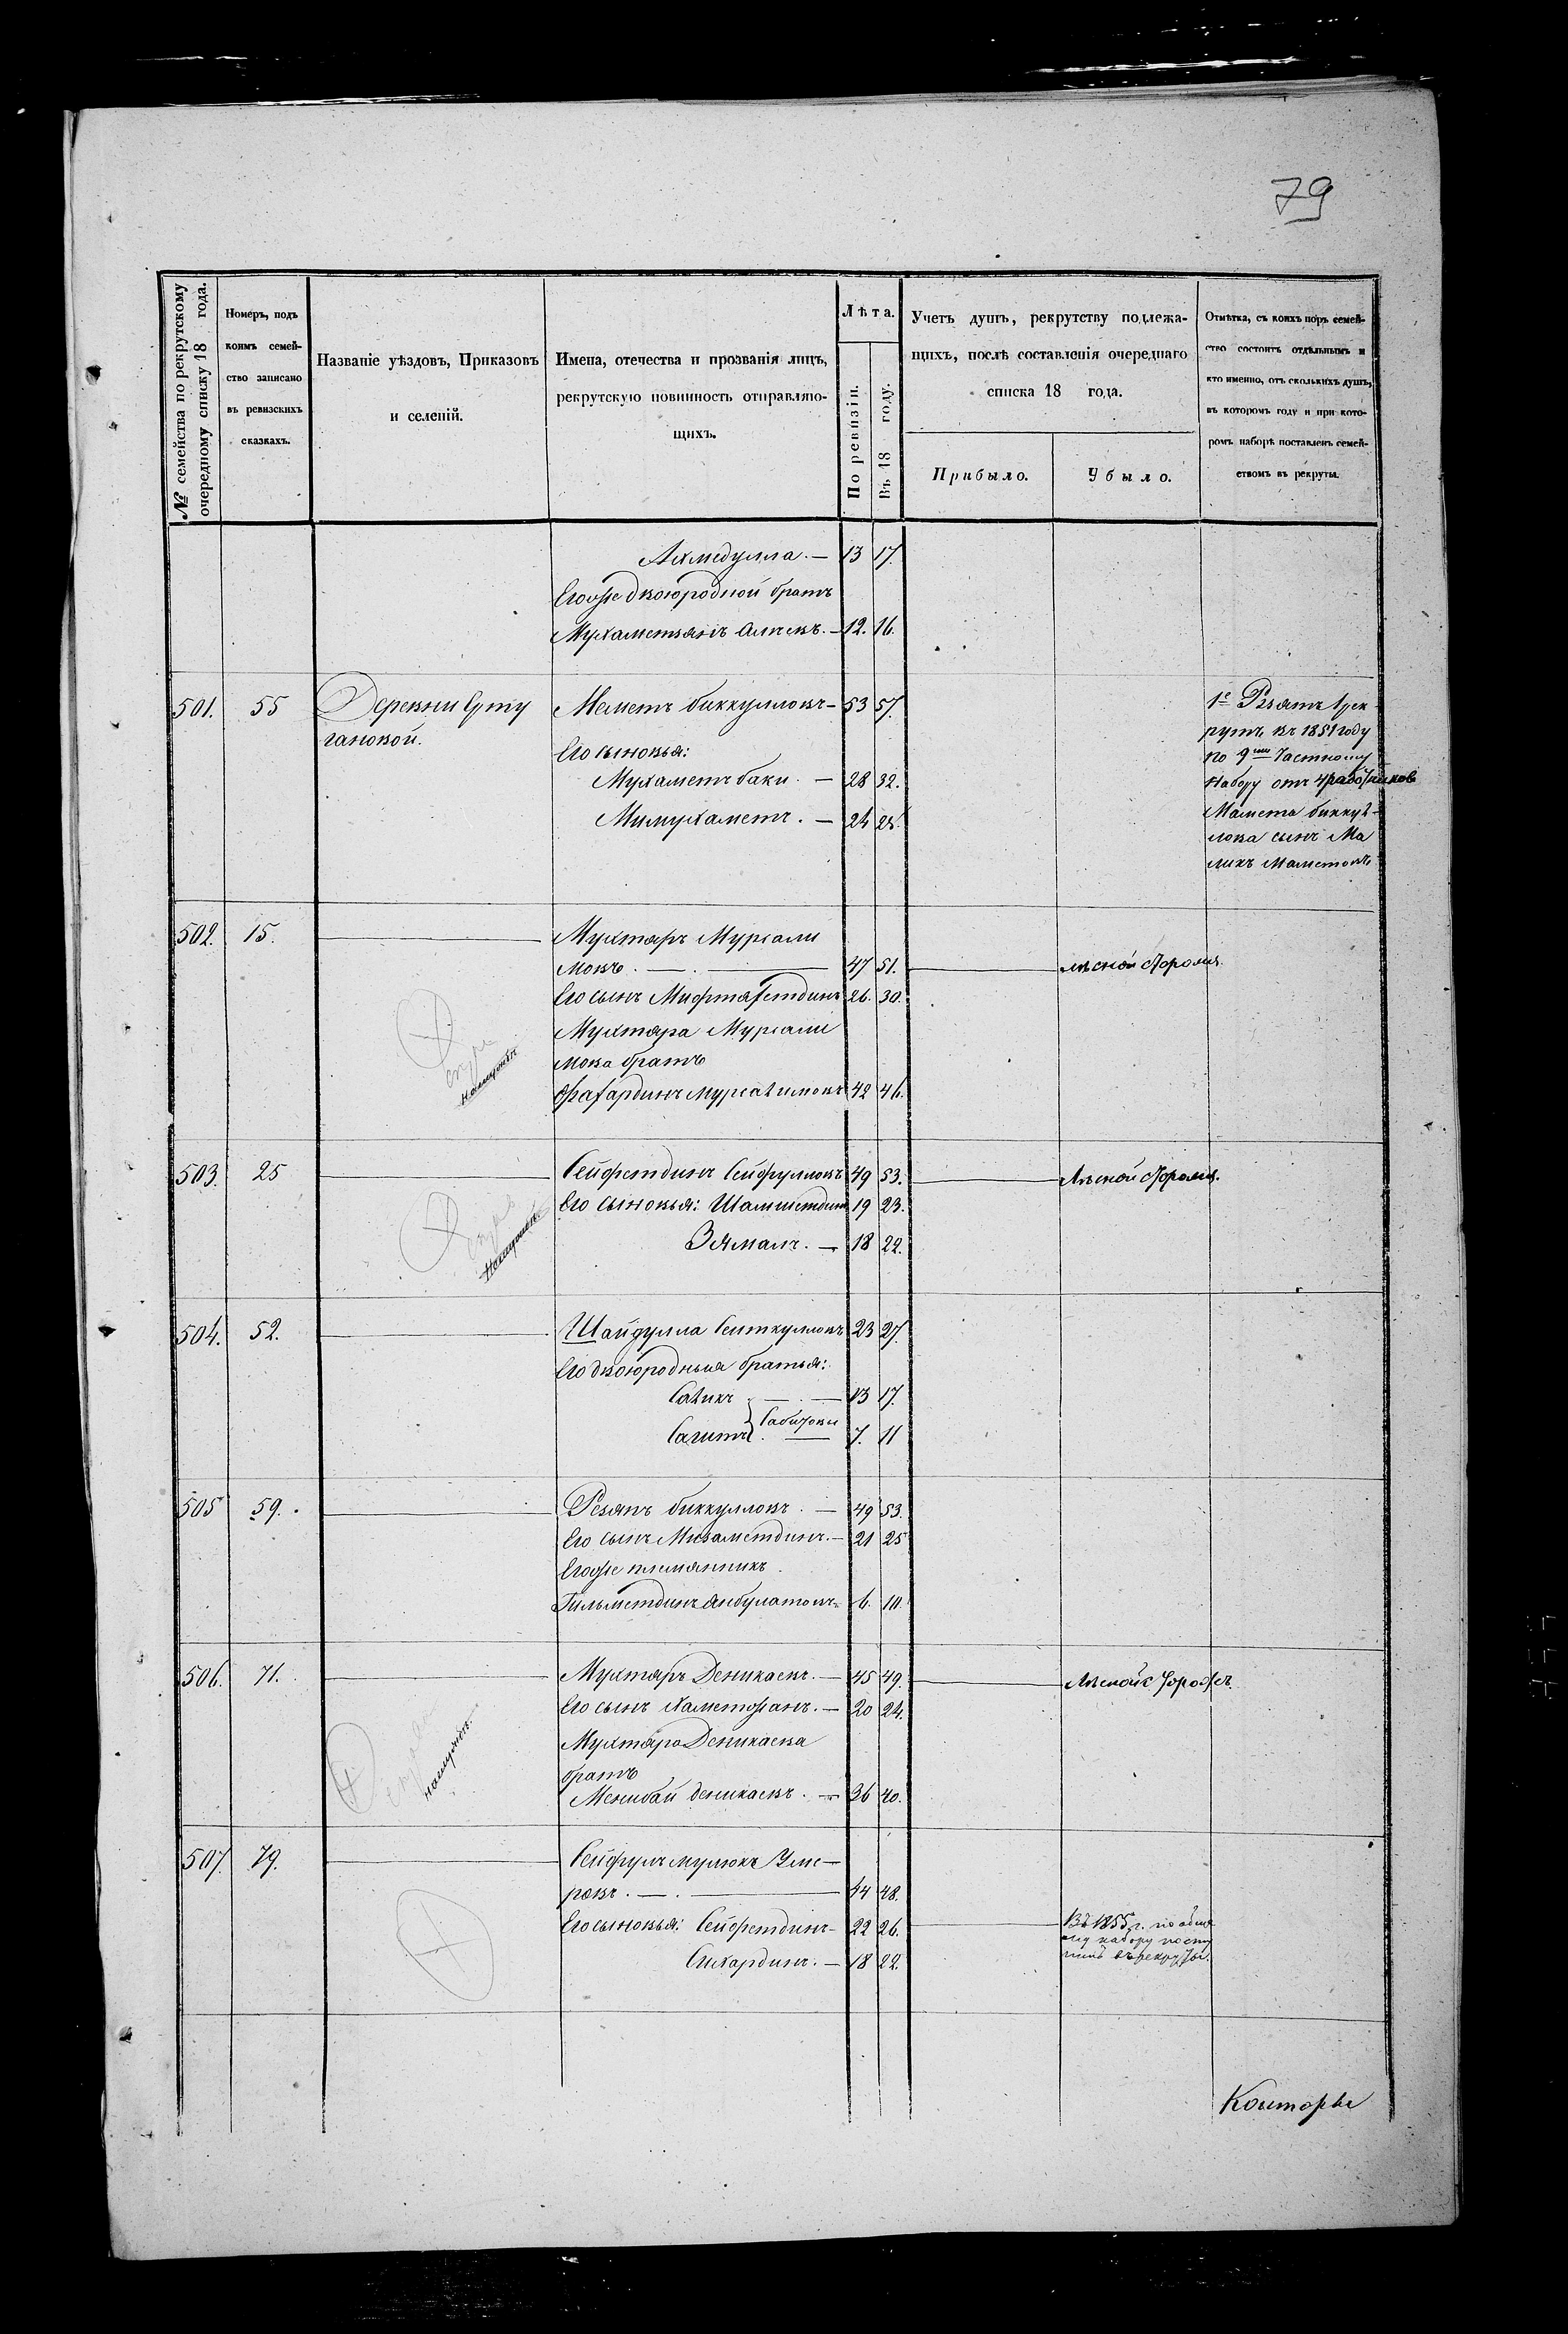 79
№ семейства по рекрутскому очередному списку 18 года.
Номеръ, подъ коимъ семейство записано въ ревизскихъ сказкахъ.
Названіе уѣздовъ, Приказовъ и селеній.
Имена, отечества и прозванія лицъ, рекрутскую повинность отправляющихъ.
Лѣта.
По ревизіи.
Въ 18 году.
Учетъ душъ, рекрутству подлежащихъ, послѣ составленія очереднаго списка 18 года.
Прибыло.
Убыло.
Отмѣтка, съ коихъ поръ семейство состоитъ отдѣльнымъ и кто именно, отъ сколькихъ душъ, въ которомъ году и при которомъ наборѣ поставленъ семействомъ въ рекруты.
Ахмедулла. — 13 17.
Его же двоюродной братъ
Мухаметзянъ 12. 16.
501. 55 Деревни Урту Маметъ Биккуловъ — 53 57.
гановой.
Его сыновья:
Мухаметъ баки. — 28 32.
Мимухаметъ. — 24 28.
1е Взятъ 1 рек
рутъ въ 1851 году
по 9му Частному
набору отъ 4 работников
Мамета Биккул
лова сынъ Ма
ликъ Маметовъ
502. 15. Мухтаръ Мурсали
мовъ. — 47 51. лѣсной сторожъ.
Его сынъ Мифтахетдинъ 26. 30.
Мухтара Мурсали
мова братъ
Фахардинъ Мурсалимовъ 42 46.
503. 25 Сейфетдинъ Сейфулловъ 49 53. Лѣсной сторожъ.
Его сыновья: Шамшетдинъ 19 23.
Зямалъ. — 18 22.
504. 52. Шайдулла Сеиткуловъ 23 27.
Его двоюродныя братья:
Салихъ — 13 17.
Сабитовы
Сагитъ — 7. 11
505 59. Резяпъ Биккуловъ. — 49 53.
Его сынъ Низаметдинъ. — 21 25
Его же племянникъ
Гильметдинъ Янбулатовъ. 6. 10
506. 71. Мухтаръ Деникаевъ. — 45 49. Лѣсной сторожъ.
Его сынъ Хаметжанъ. — 20 24.
Мухтара Деникаева
братъ
Менибай Деникаевъ. — 36 40.
507. 79. Сейфулмулюкъ Уме—
ровъ. — 44 48.
Его сыновья: Сейфетдинъ — 22 26. Въ 1855 г. по общ
ему набору посту
пилъ въ рекруты.
Сихардинъ. — 18 22.